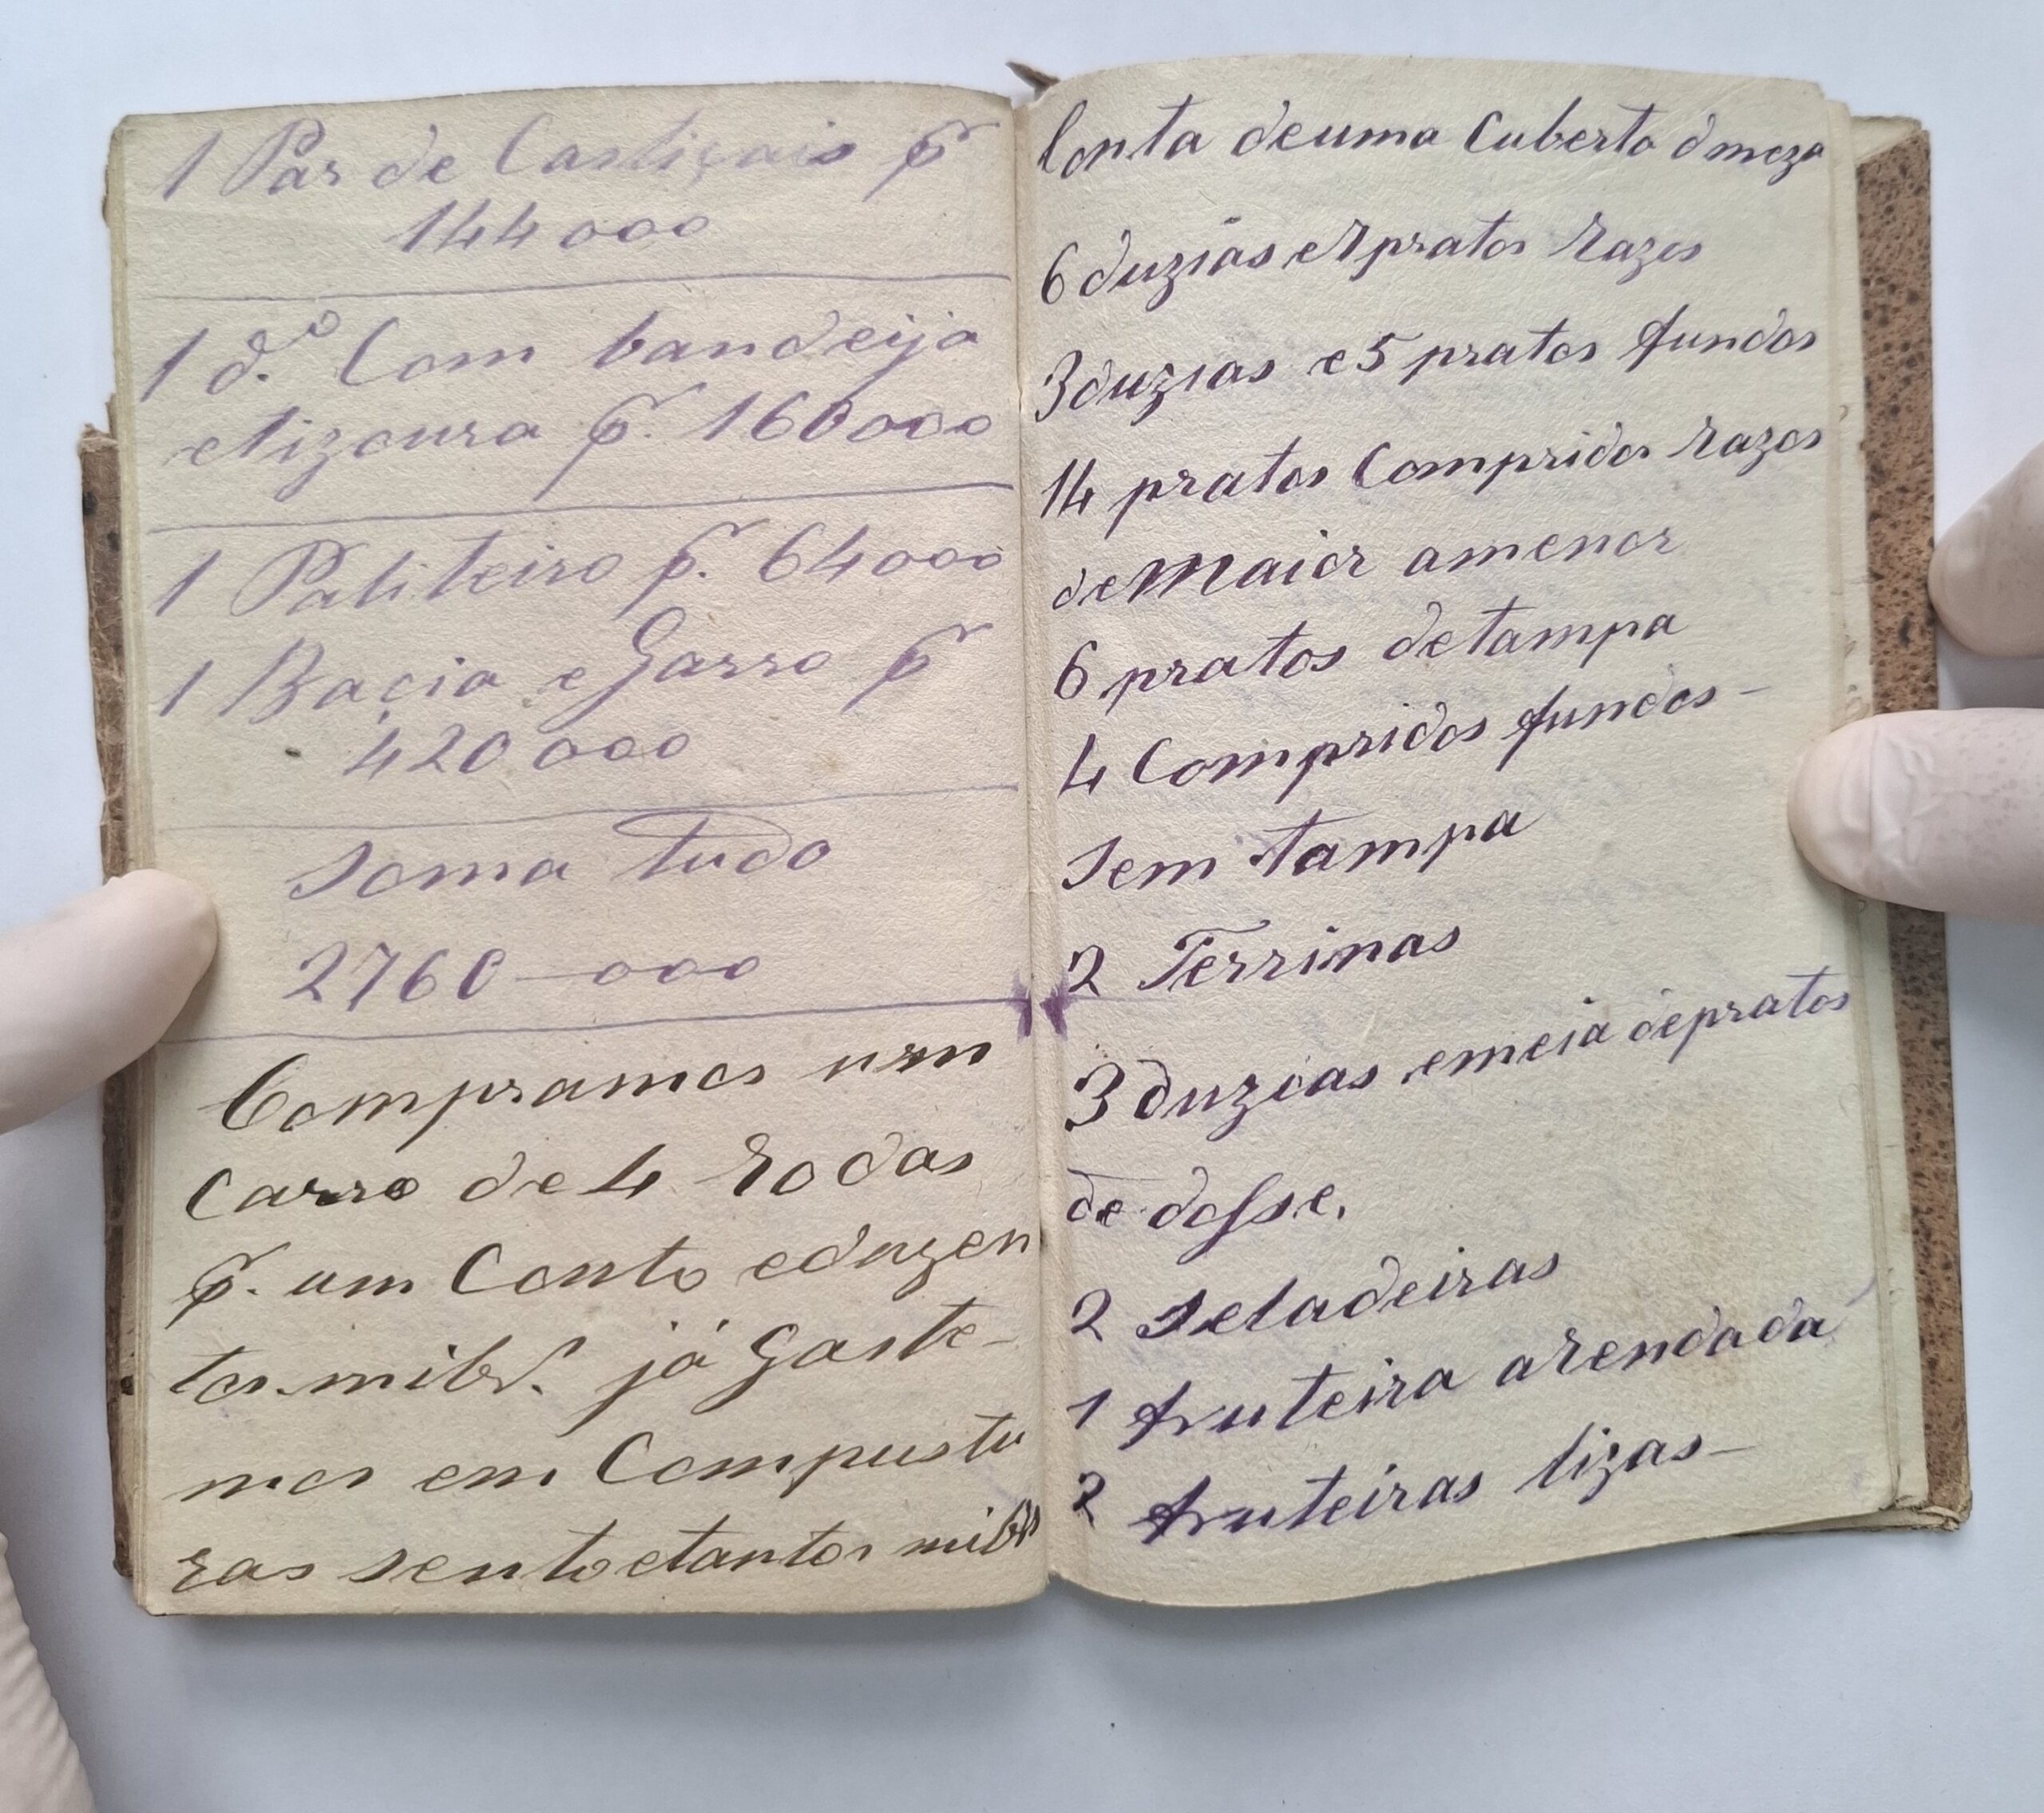 1 Par de Castiçais p
144000
1 d.º Com bandeija
etizoura p. 160000
1 Paliteiro p. 64000
1 Bacia eJarro p
420000
Soma tudo
2760—000
Compramos um
Carro de 4 rodas
p. um Conto eduzen
tos.milrs. já Gaste-
mos em Compustu
ras sentoetantos milrs
Conta deuma Cuberta d meza
6 duzias e9pratos razos
3duzias e5 pratos fundos
14 pratos Compridos razos
deMaior amenor
6 pratos detampa
4 Compridos fundos-
sem tampa
2 Terrinas
3 duzias emeia depratos
de dosse.
2 Seladeiras
1 fruteira arendada
2 fruteiras lizas-